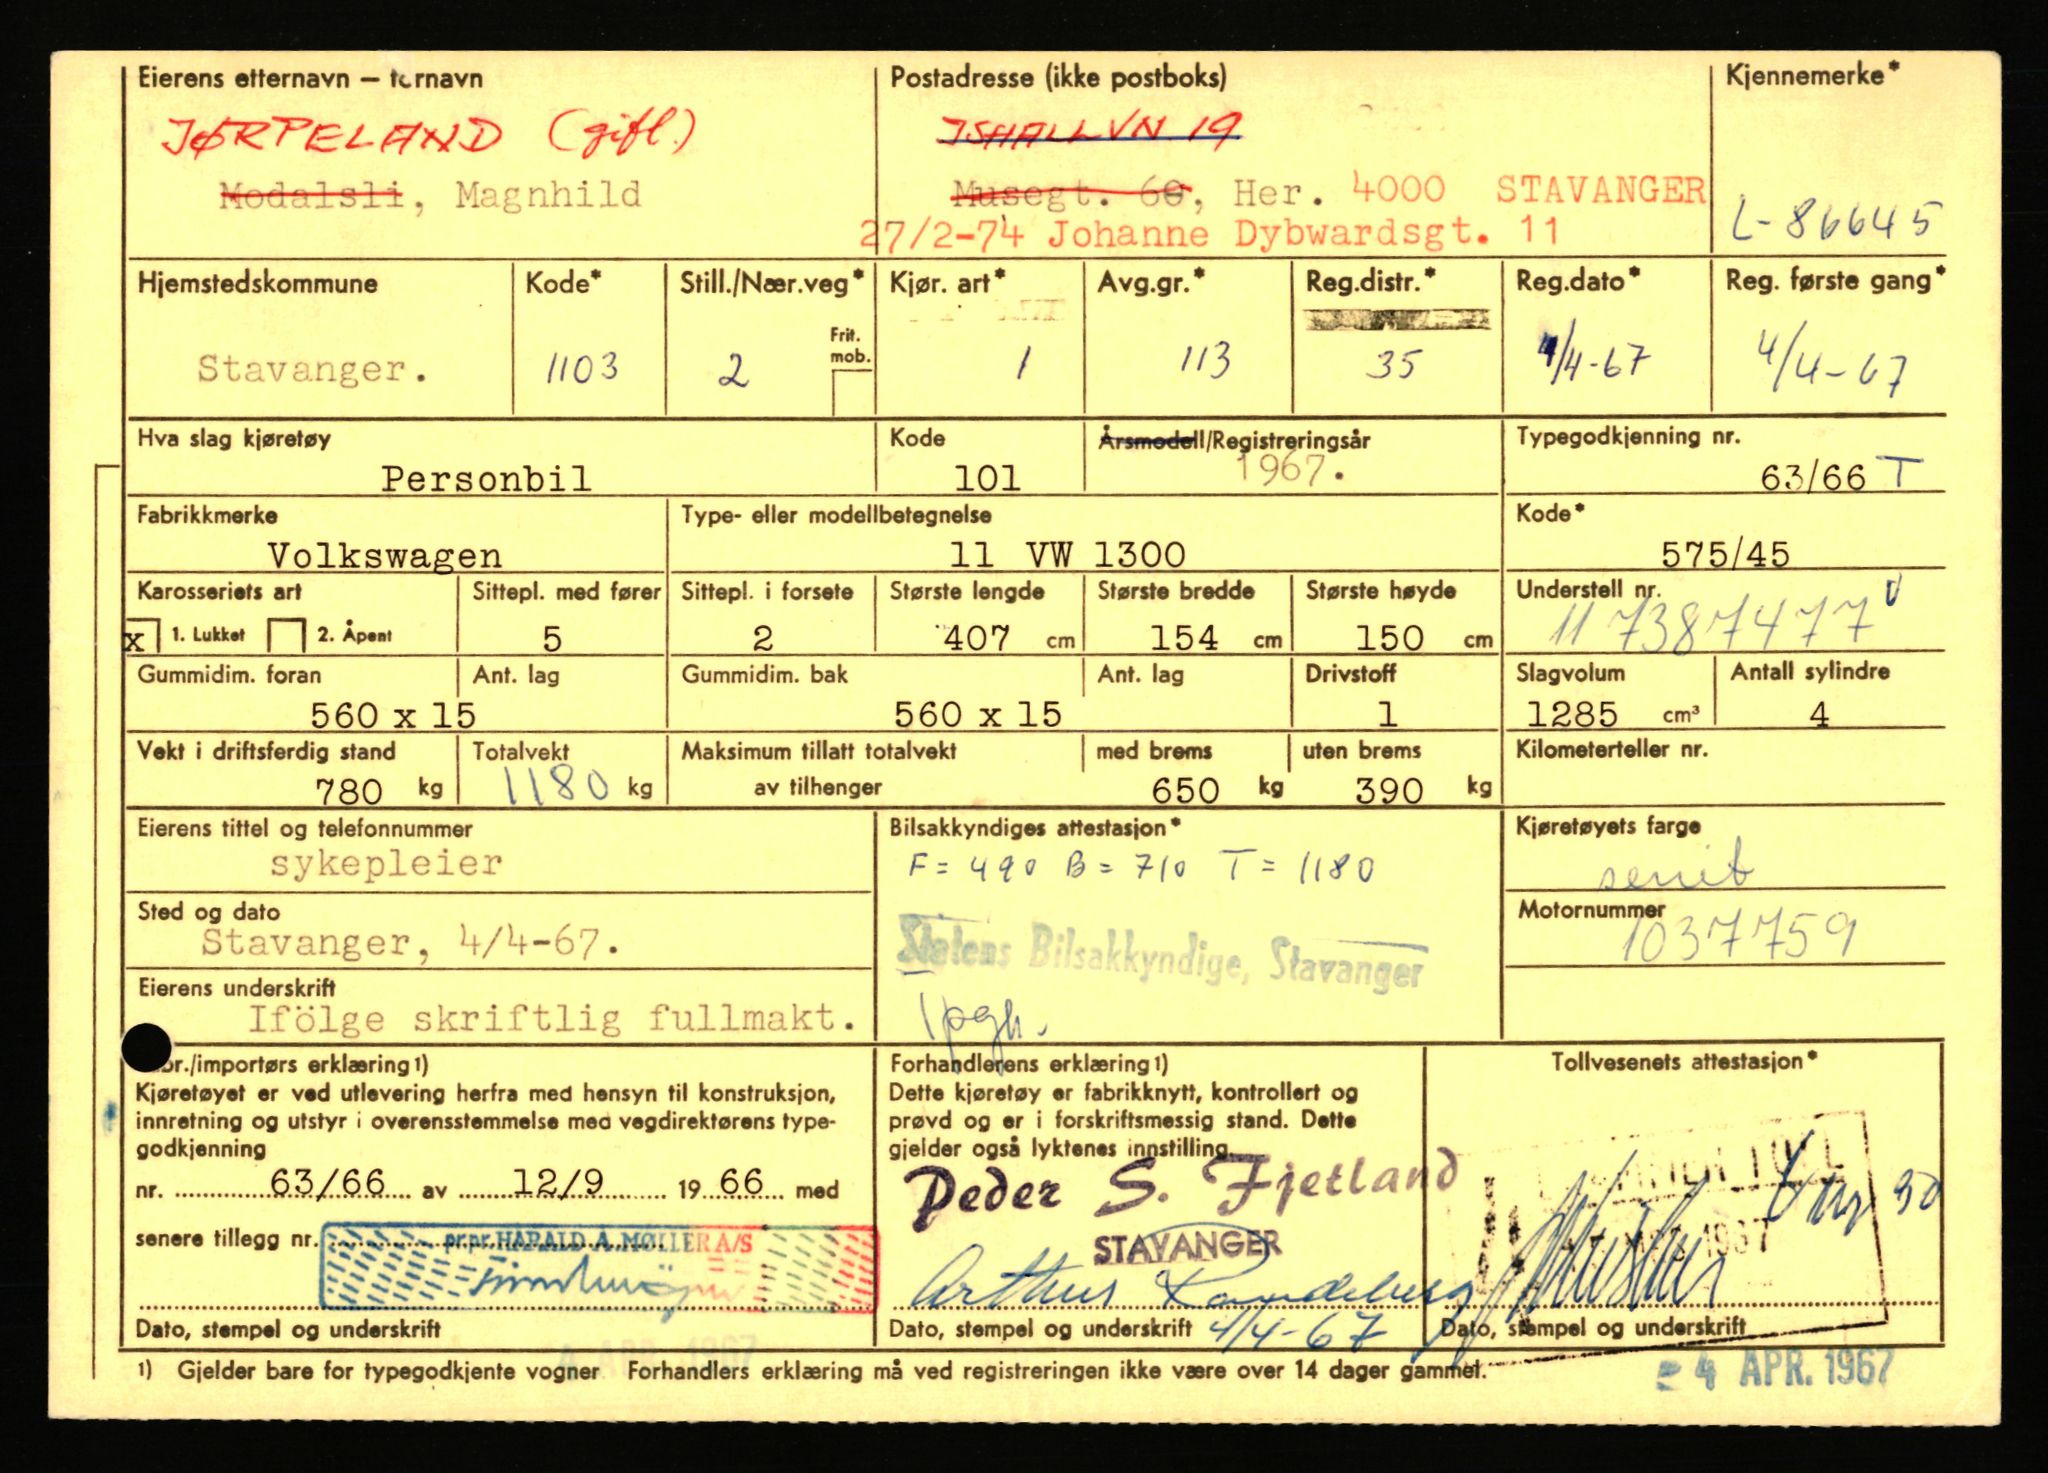 Eierens etternavn – fornavn
JØRPELAND (gift.)
Modalsli, Magnhild
Postadresse (ikke postboks)
ISHALLVN 19
Musegt. 60, Her. 4000 STAVANGER
27/2-74 Johanne Dybwardsgt. 11
Kjennemerke*
L-86645
Hjemstedskommune
Stavanger.
Kode*
1103
Still./Nær.veg*
2
Frit.
mob.
Kjør. art*
1
Avg.gr.*
113
Reg.distr.*
35
Reg.dato*
4/4-67
Reg. første gang*
4/4-67
Hva slag kjøretøy
Personbil
Kode
101
Årsmodell/Registreringsår
1967.
Typegodkjenning nr.
63/66 T
Fabrikkmerke
Volkswagen
Type- eller modellbetegnelse
11 VW 1300
Kode*
575/45
Karosseriets art
x 1. Lukket 2. Åpent
Sittepl. med fører
5
Sittepl. i forsete
2
Største lengde
407 cm
Største bredde
154 cm
Største høyde
150 cm
Understell nr.
117387477
Gummidim. foran
560 x 15
Ant. lag
Gummidim. bak
560 x 15
Ant. lag
Drivstoff
1
Slagvolum
1285 cm³
Antall sylindre
4
Vekt i driftsferdig stand
780 kg
Totalvekt
1180 kg
Maksimum tillatt totalvekt
av tilhenger
med brems
650 kg
uten brems
390 kg
Kilometerteller nr.
Eierens tittel og telefonnummer
sykepleier
Bilsakkyndiges attestasjon*
F = 490 B = 710 T = 1180
Statens Bilsakkyndige, Stavanger
Kjøretøyets farge
Sted og dato
Stavanger, 4/4-67.
Motornummer
1037759
Eierens underskrift
Ifölge skriftlig fullmakt.
br./importørs erklæring 1)
Kjøretøyet er ved utlevering herfra med hensyn til konstruksjon,
innretning og utstyr i overensstemmelse med vegdirektørens type-
godkjenning
nr. 63/66 av 12/9 19 66 med
senere tillegg nr.
pr.pr. HARALD A. MØLLER A/S
Dato, stempel og underskrift
Forhandlerens erklæring 1)
Dette kjøretøy er fabrikknytt, kontrollert og
prøvd og er i forskriftsmessig stand. Dette
gjelder også lyktenes innstilling.
Peder S. Fjetland
STAVANGER
Arthur
Dato, stempel og underskrift 4/4-67
Tollvesenets attestasjon*
1967
Dato, stempel og underskrift
1) Gjelder bare for typegodkjente vogner Forhandlers erklæring må ved registreringen ikke være over 14 dager gammel.
- 4 APR. 1967